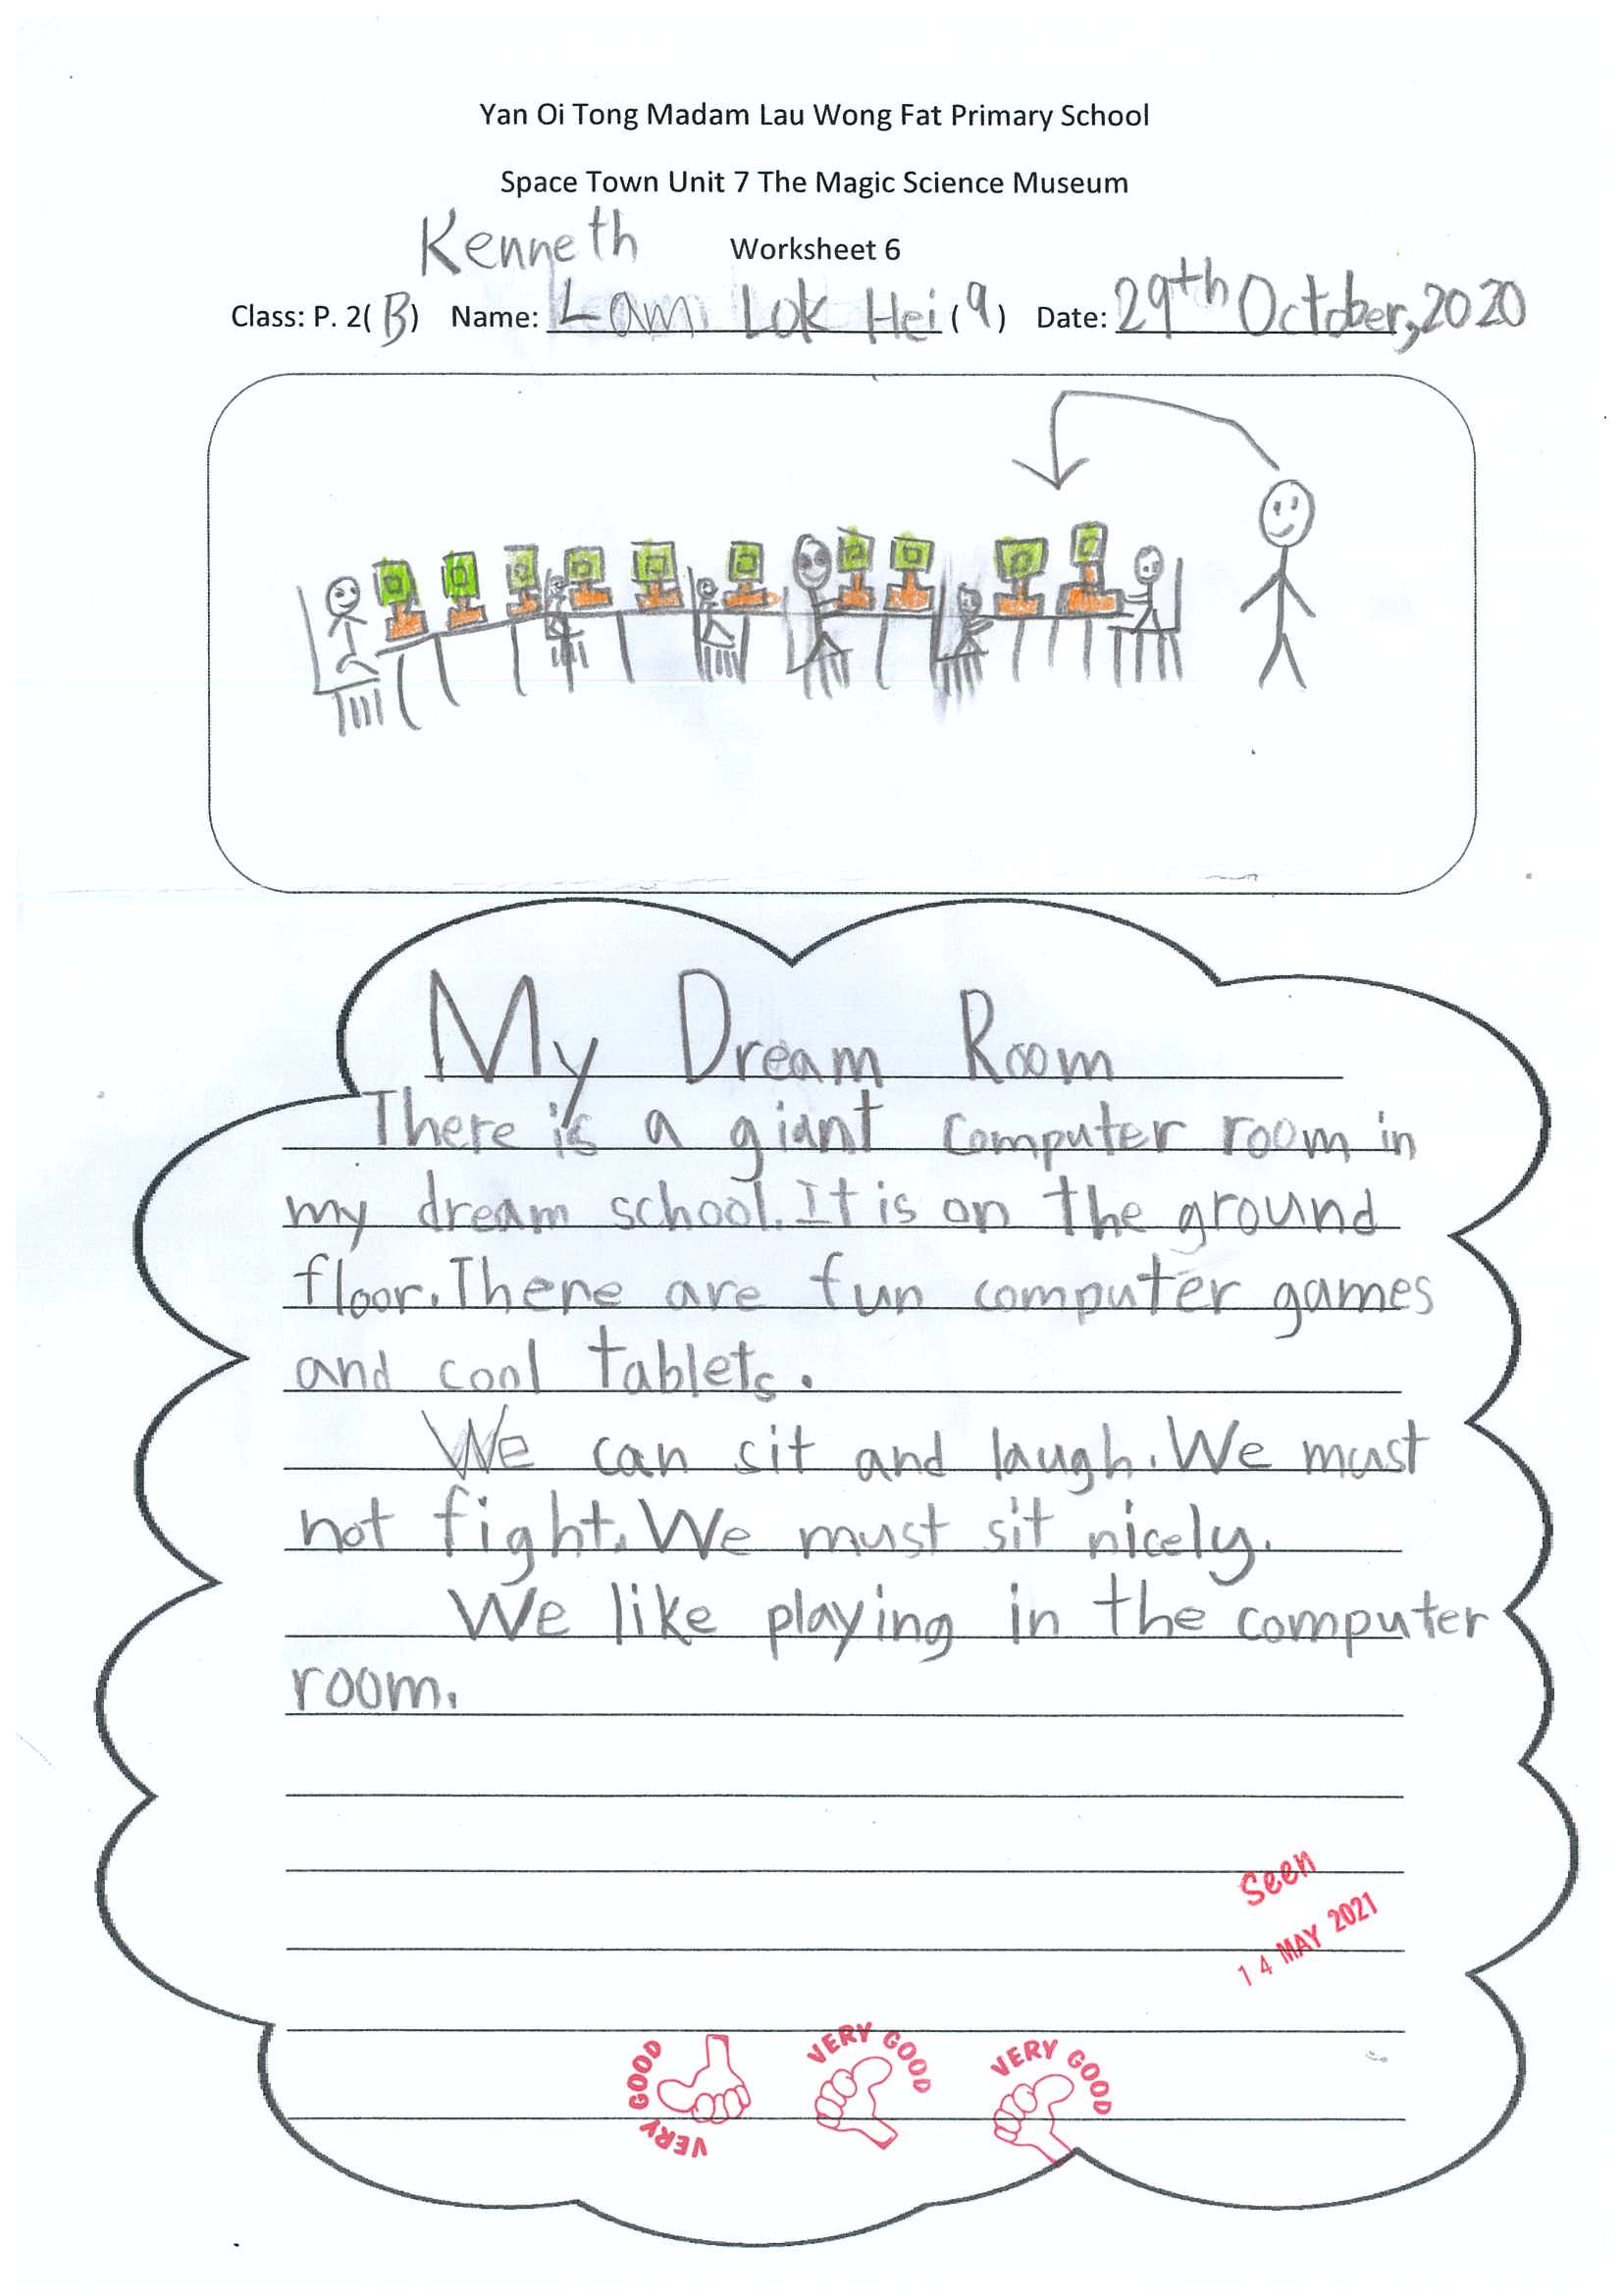 Yan Oi Tong Madam Lau Wong Fat Primary School
Space Town Unit 7 The Magic Science Museum
Kenneth
Worksheet 6
Class: P. 2(B) Name: Lam Lok Hei (9) Date: 29th October, 2020
My Dream Room
There is a giant computer room in
my dream school. It is on the ground
floor. There are fun computer games
and cool tablets.
We can sit and laugh. We must
not fight. We must sit nicely.
We like playing in the computer
room.
Seen
14 MAY 2021
VERY GOOD
VERY GOOD
VERY GOOD